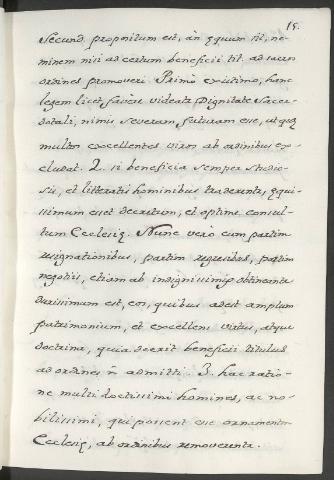 15.
Secund. propositum est, an ȩquum sit, ne-
minem nisi ad certum beneficii tit. ad sacros
ordines promoveri. Primò existimo, hanc
legem licet favere videatr Dignitate Sacer-
dotali, nimis severam, futuram esse, utqȝ
multos excellentes viros ab ordinibus ex-
cludat. 2. si beneficia semper studio-
sis, et litteratis hominibus traderentr, ȩqui-
ssimum esset decretum, et optime consul-
tum Ecclesiȩ. Nunc verò cum partim
resignationibus, partim regressibus, partim
negotiis, etiam ab indignissimis obtineantr
durissimum est, eos, quibus adest amplum
patrimonium, et excellens virtus, atque
doctrina, quia deerit beneficii titulus
ad ordines n̄ admitti. 3. hac ratio-
ne multi doctissimi homines, ac no-
bilissimi, qui possent esse ornamento
Ecclesiȩ, ab ordinibus removerentr.